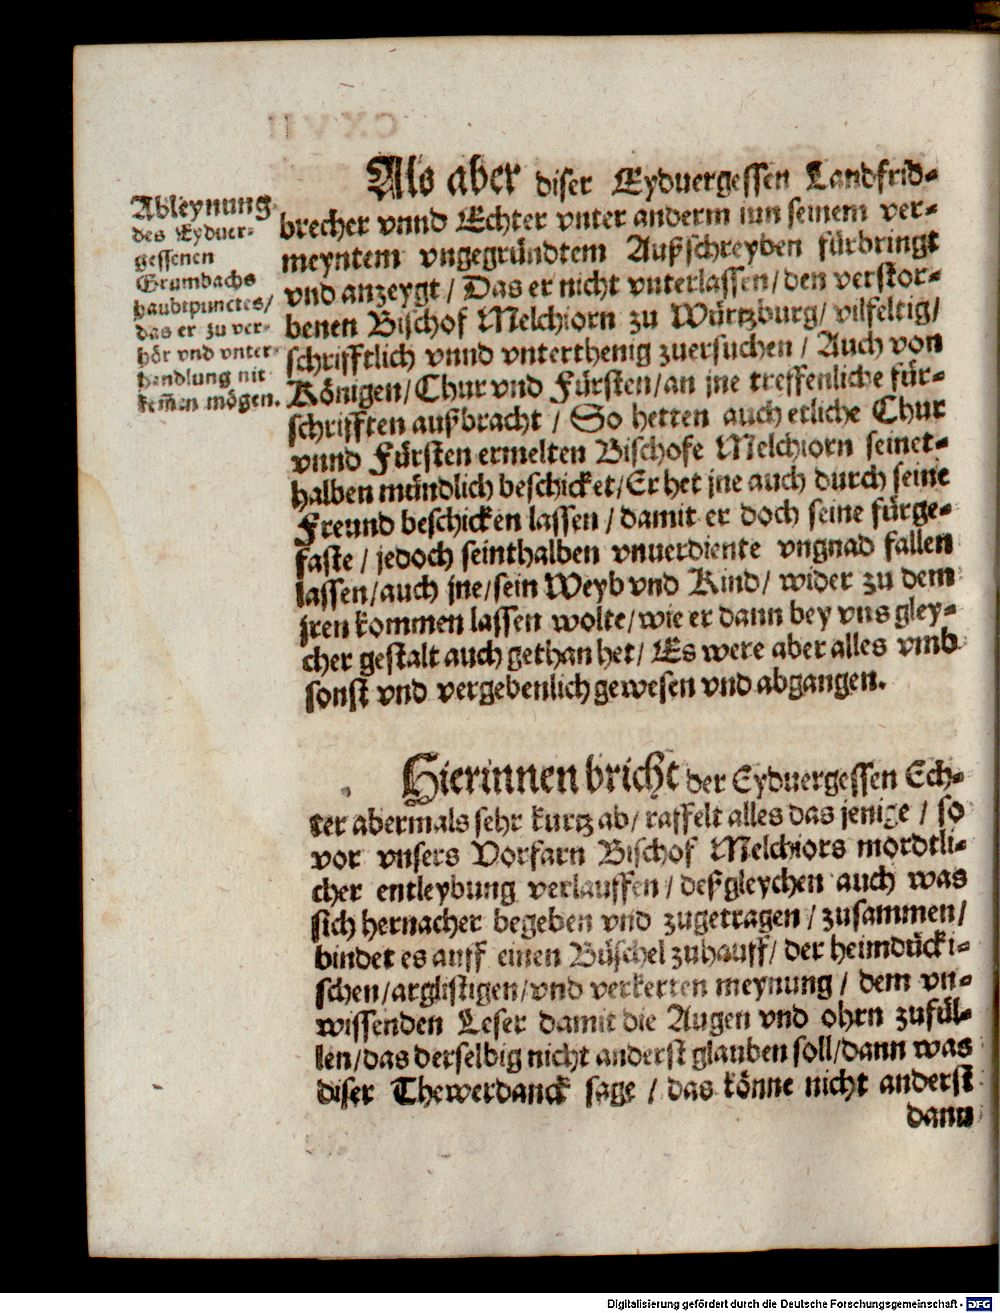 Ableynung
des Eyduer-
gessenen
Grumbachs
haubtpunctes/
das er zu ver-
hör vnd vnter-
handlung nit
kem̃en mögen.
Als aber diser Eyduergessen Landfrid-
brecher vnnd Echter vnter anderm inn seinem ver-
meyntem vngegründtem Außschreyben fürbringt
vnd anzeygt / Das er nicht vnterlassen / den verstor-
benen Bischof Melchiorn zu Würtzburg / vilfeltig /
schrifftlich vnnd vnterthenig zuersuchen / Auch von
Königen / Chur vnd Fürsten / an jne treffenliche für-
schrifften außbracht / So hetten auch etliche Chur
vnnd Fürsten ermelten Bischofe Melchiorn seinet-
halben mündlich beschicket / Er het jne auch durch seine
Freund beschicken lassen / damit er doch seine fürge-
faste / jedoch seinthalben vnuerdiente vngnad fallen
lassen / auch jne / sein Weyb vnd Kind / wider zu dem
jren kommen lassen wolte / wie er dann bey vns gley-
cher gestalt auch gethan het / Es were aber alles vmb
sonst vnd vergebenlich gewesen vnd abgangen.
Hierinnen bricht der Eyduergessen Ech-
ter abermals sehr kurtz ab / raffelt alles das jenige / so
vor vnsers Vorfarn Bischof Melchiors mordtli-
cher entleybung verlauffen / deßgleychen auch was
sich hernacher begeben vnd zugetragen / zusammen /
bindet es auff einen Büschel zuhauff / der heimdücki-
schen / arglistigen / vnd verkerten meynung / dem vn-
wissenden Leser damit die Augen vnd ohrn zufül-
len / das derselbig nicht anderst glauben soll / dann was
diser Thewerdanck sage / das könne nicht anderst
dann
Digitalisierung gefördert durch die Deutsche Forschungsgemeinschaft - DFG